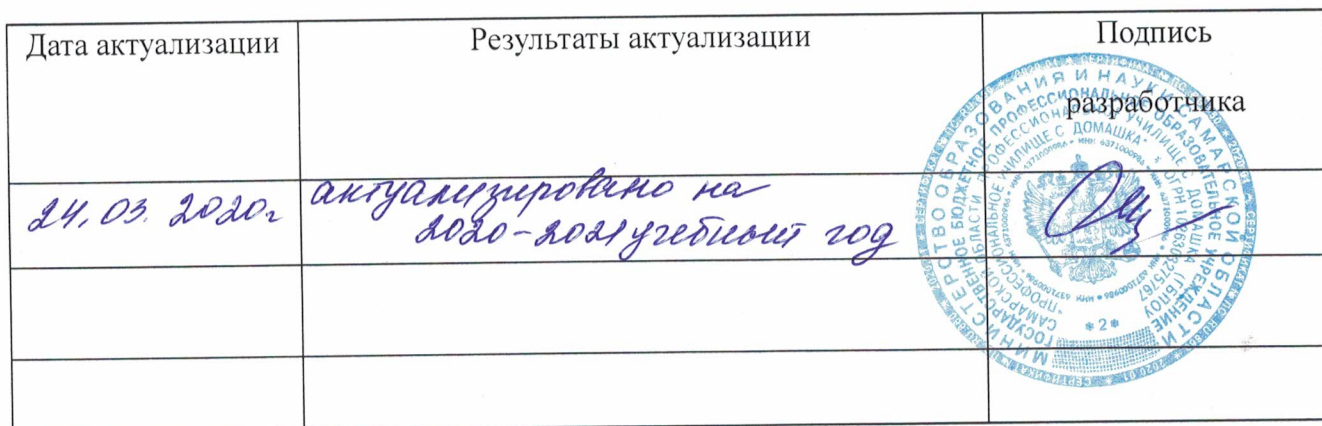 Дата актуализации
Результаты актуализации
Подпись
разработчика
24.03.2020г
актуализировано на
2020-2021 учебный год
МИНИСТЕРСТВО ОБРАЗОВАНИЯ И НАУКИ САМАРСКОЙ ОБЛАСТИ
ГОСУДАРСТВЕННОЕ БЮДЖЕТНОЕ ПРОФЕССИОНАЛЬНОЕ ОБРАЗОВАТЕЛЬНОЕ УЧРЕЖДЕНИЕ
САМАРСКОЙ ОБЛАСТИ "ПРОФЕССИОНАЛЬНОЕ УЧИЛИЩЕ С. ДОМАШКА" (ГБПОУ
"ПРОФЕССИОНАЛЬНОЕ УЧИЛИЩЕ С. ДОМАШКА"
* ИНН 6371000986 *
* 2 *